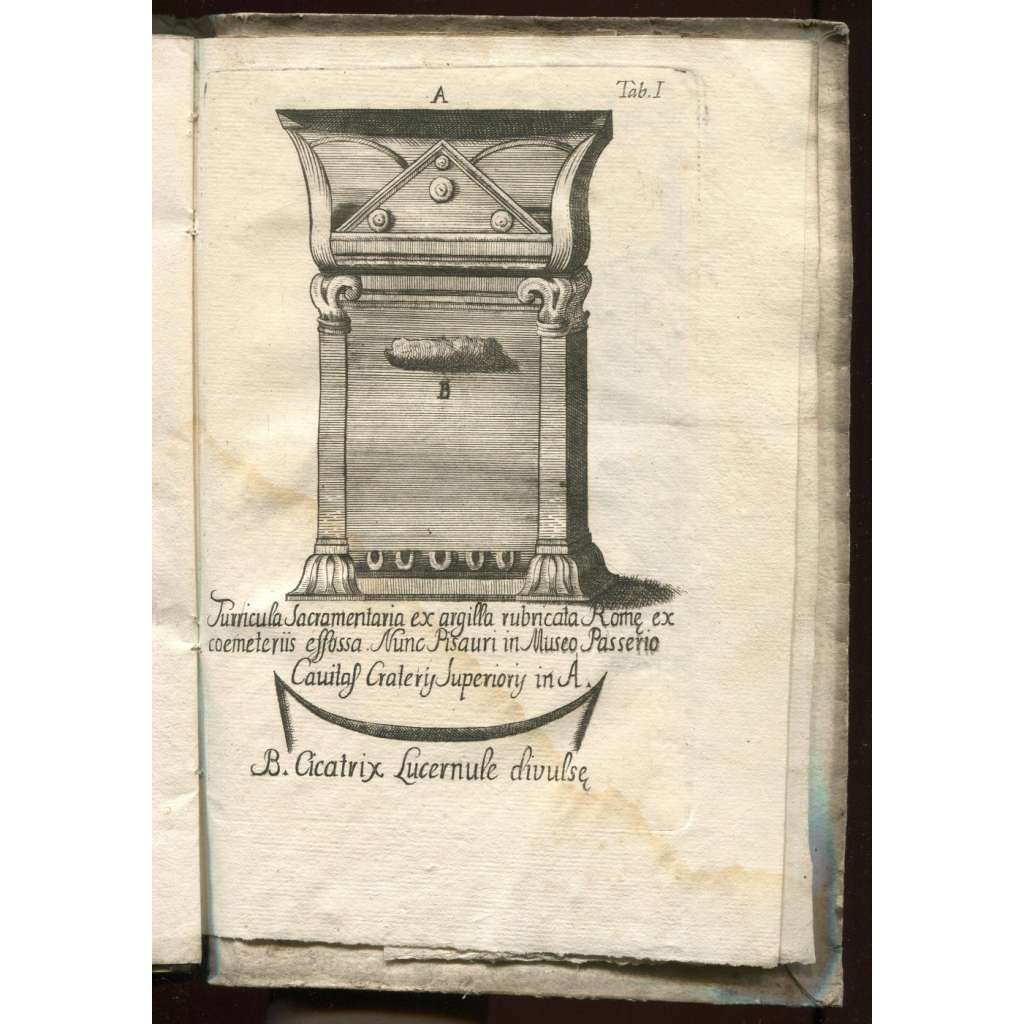 A
Tab. I
B
Turricula Sacramentaria ex argilla rubricata Romę ex
coemeteriis effossa. Nunc Pisauri in Museo Passerio
Cavitas Craterij Superiorij in A.
B. Cicatrix Lucernule divulsę